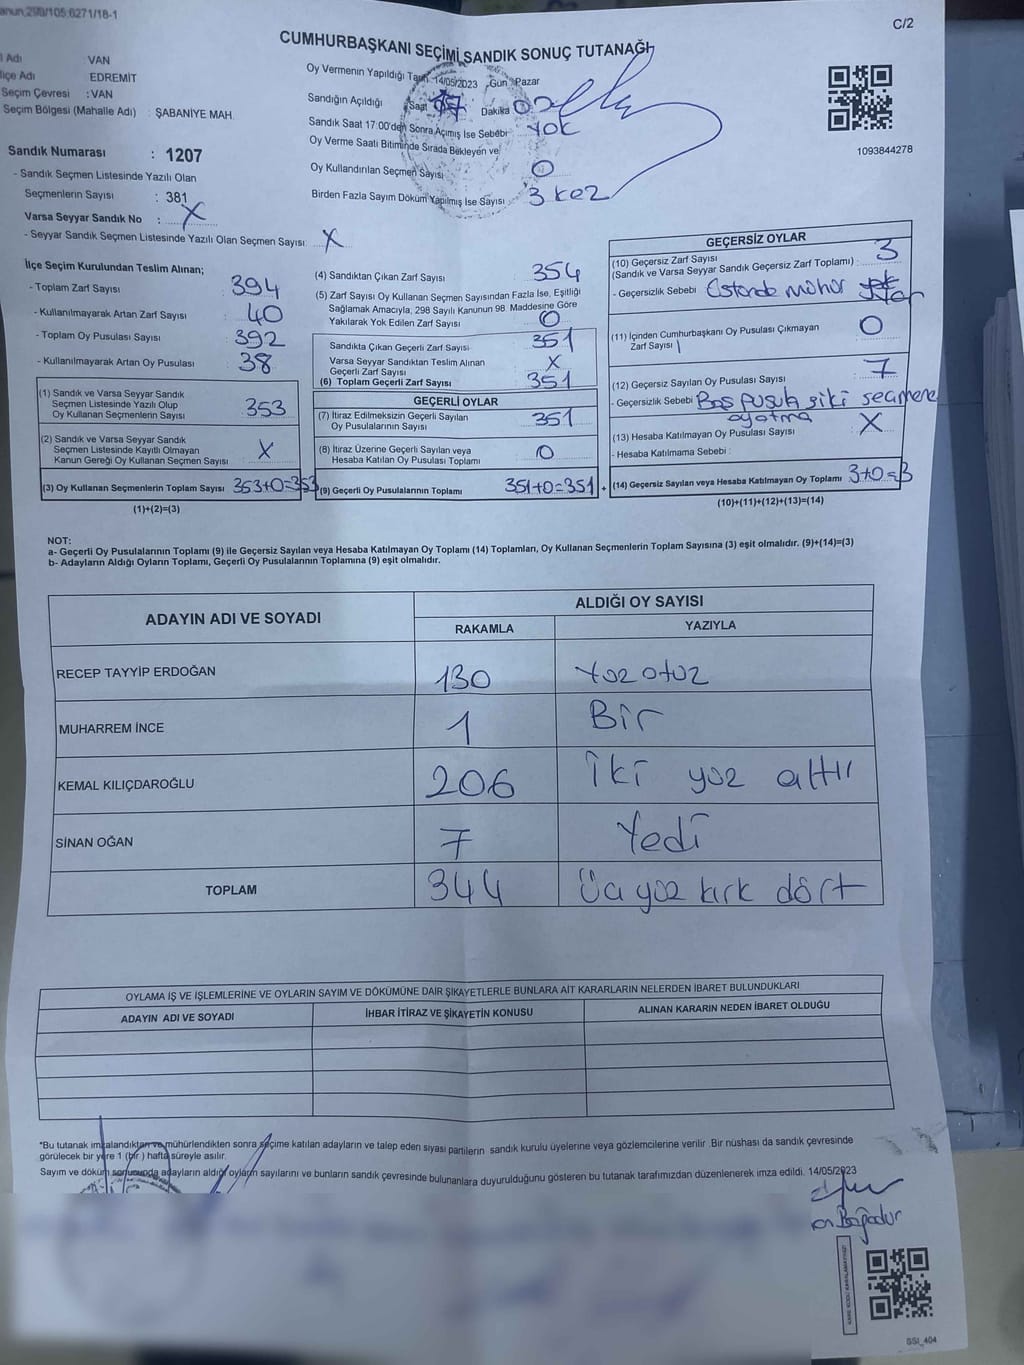 C/2
CUMHURBAŞKANI SEÇİMİ SANDIK SONUÇ TUTANAĞI
VAN
EDREMİT
Seçim Çevresi : VAN
Seçim Bölgesi (Mahalle Adı) : ŞABANİYE MAH.
Sandık Numarası : 1207
- Sandık Seçmen Listesinde Yazılı Olan
Seçmenlerin Sayısı : 381
Varsa Seyyar Sandık No : X
- Seyyar Sandık Seçmen Listesinde Yazılı Olan Seçmen Sayısı: X
Oy Vermenin Yapıldığı Tarih 14/05/2023 Gün Pazar
Sandığın Açıldığı Saat 17 Dakika 00
Sandık Saat 17:00'den Sonra Açımış İse Sebebi yok
Oy Verme Saati Bitiminde Sırada Bekleyen ve
Oy Kullandırılan Seçmen Sayısı 0
Birden Fazla Sayım Döküm Yapılmış İse Sayısı 3 kez
1093844278
İlçe Seçim Kurulundan Teslim Alınan;
- Toplam Zarf Sayısı 394
- Kullanılmayarak Artan Zarf Sayısı 40
- Toplam Oy Pusulası Sayısı 392
- Kullanılmayarak Artan Oy Pusulası 38
(1) Sandık ve Varsa Seyyar Sandık
Seçmen Listesinde Yazılı Olup
Oy Kullanan Seçmenlerin Sayısı 353
(2) Sandık ve Varsa Seyyar Sandık
Seçmen Listesinde Kayıtlı Olmayan
Kanun Gereği Oy Kullanan Seçmen Sayısı X
(3) Oy Kullanan Seçmenlerin Toplam Sayısı 353+0=353
(1)+(2)=(3)
(4) Sandıktan Çıkan Zarf Sayısı 354
(5) Zarf Sayısı Oy Kullanan Seçmen Sayısından Fazla İse, Eşitliği
Sağlamak Amacıyla, 298 Sayılı Kanunun 98. Maddesine Göre
Yakılarak Yok Edilen Zarf Sayısı 0
Sandıkta Çıkan Geçerli Zarf Sayısı 351
Varsa Seyyar Sandıktan Teslim Alınan
Geçerli Zarf Sayısı X
(6) Toplam Geçerli Zarf Sayısı 351
GEÇERLİ OYLAR
(7) İtiraz Edilmeksizin Geçerli Sayılan
Oy Pusulalarının Sayısı 351
(8) İtiraz Üzerine Geçerli Sayılan veya
Hesaba Katılan Oy Pusulası Toplamı 0
(9) Geçerli Oy Pusulalarının Toplamı 351+0=351 +
GEÇERSİZ OYLAR
(10) Geçersiz Zarf Sayısı
(Sandık ve Varsa Seyyar Sandık Geçersiz Zarf Toplamı) : 3
- Geçersizlik Sebebi Üstünde mühür
(11) İçinden Cumhurbaşkanı Oy Pusulası Çıkmayan
Zarf Sayısı 0
(12) Geçersiz Sayılan Oy Pusulası Sayısı 7
- Geçersizlik Sebebi
(13) Hesaba Katılmayan Oy Pusulası Sayısı X
- Hesaba Katılmama Sebebi :
(14) Geçersiz Sayılan veya Hesaba Katılmayan Oy Toplamı 3+0=3
(10)+(11)+(12)+(13)=(14)
NOT:
a- Geçerli Oy Pusulalarının Toplamı (9) ile Geçersiz Sayılan veya Hesaba Katılmayan Oy Toplamı (14) Toplamları, Oy Kullanan Seçmenlerin Toplam Sayısına (3) eşit olmalıdır. (9)+(14)=(3)
b- Adayların Aldığı Oyların Toplamı, Geçerli Oy Pusulalarının Toplamına (9) eşit olmalıdır.
ADAYIN ADI VE SOYADI
ALDIĞI OY SAYISI
RAKAMLA YAZIYLA
RECEP TAYYİP ERDOĞAN 130 Yüz otuz
MUHARREM İNCE 1 Bir
KEMAL KILIÇDAROĞLU 206 İki yüz altı
SİNAN OĞAN 7 Yedi
TOPLAM 344 Üç yüz kırk dört
OYLAMA İŞ VE İŞLEMLERİNE VE OYLARIN SAYIM VE DÖKÜMÜNE DAİR ŞİKAYETLERLE BUNLARA AİT KARARLARIN NELERDEN İBARET BULUNDUKLARI
ADAYIN ADI VE SOYADI İHBAR İTİRAZ VE ŞİKAYETİN KONUSU ALINAN KARARIN NEDEN İBARET OLDUĞU
*Bu tutanak imzalandıktan ve mühürlendikten sonra seçime katılan adayların ve talep eden siyasi partilerin sandık kurulu üyelerine veya gözlemcilerine verilir. Bir nüshası da sandık çevresinde
görülecek bir yere 1 (bir) hafta süreyle asılır.
Sayım ve döküm sonucunda adayların aldığı oyların sayılarını ve bunların sandık çevresinde bulunanlara duyurulduğunu gösteren bu tutanak tarafımızdan düzenlenerek imza edildi. 14/05/2023
SSI_404